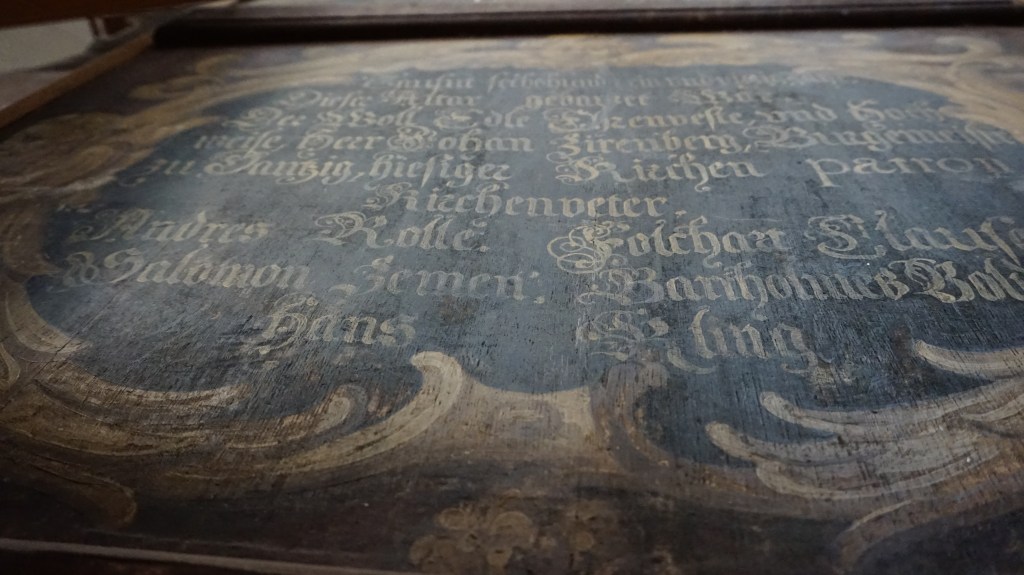 Diese Altar gebauet
Der Woll Edle Ehrenveste und
weise Herr Johan Zirenberg, Burgemeister
zu Dantzig, hiesiger Kirchen patron
Kirchenveter,
Andres Rolle Folchart Claus
Salomon Zemen: Bartholmes
Hans Eling